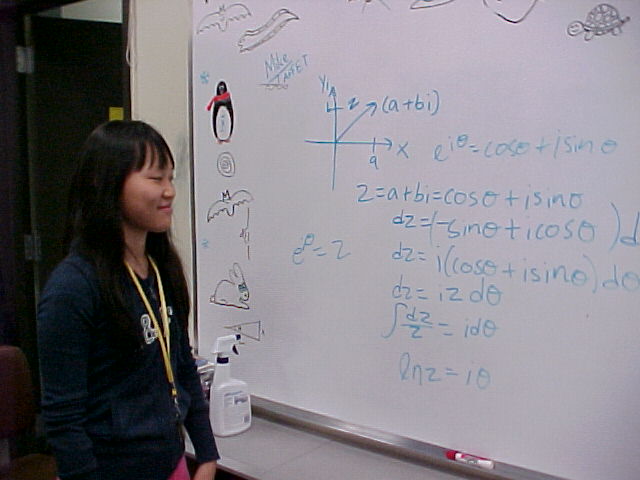 Mike
TARGET
yi
z (a+bi)
a x
e^iθ=cosθ+isinθ
z=a+bi=cosθ+isinθ
dz=(-sinθ+icosθ)d
e^iθ=z
dz=i(cosθ+isinθ)dθ
dz=iz dθ
∫dz/z=idθ
lnz=iθ